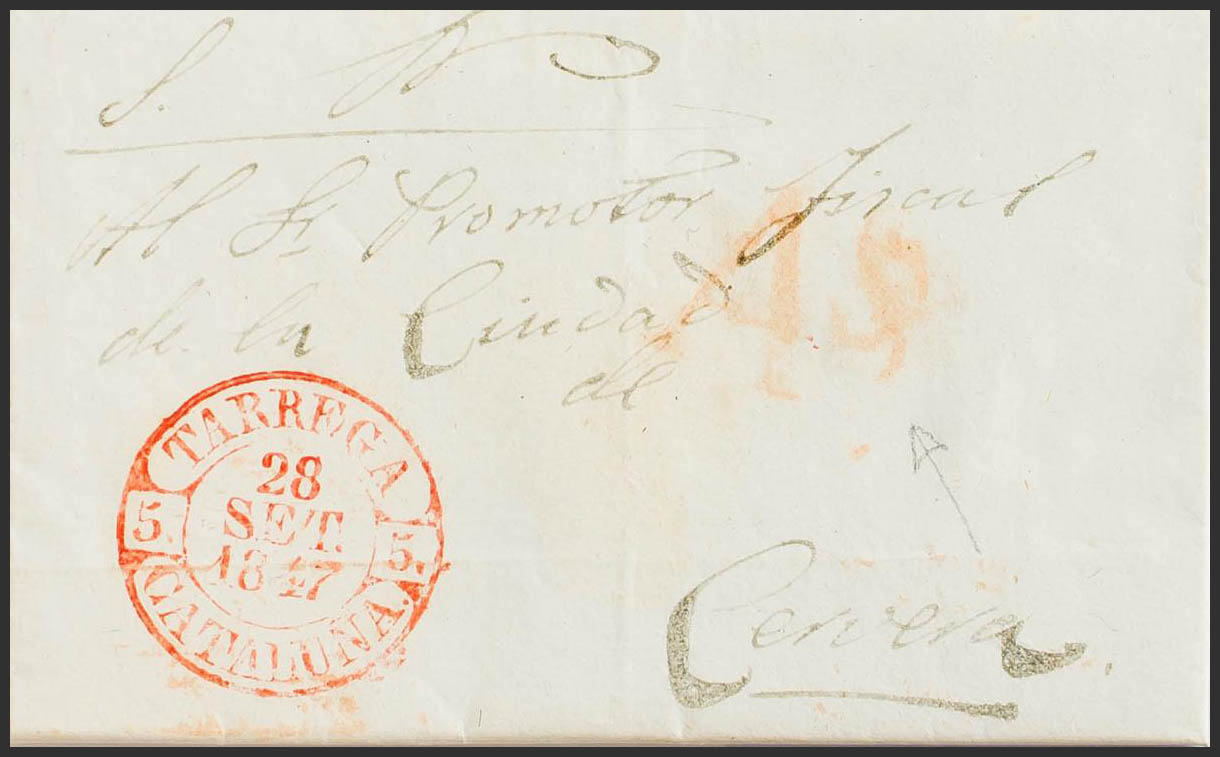 S. N
Al Sr Promotor Fiscal
de la Ciudad
de
Cervera.
TARREGA
28
SET.
1847
5. 5.
CATALUÑA.